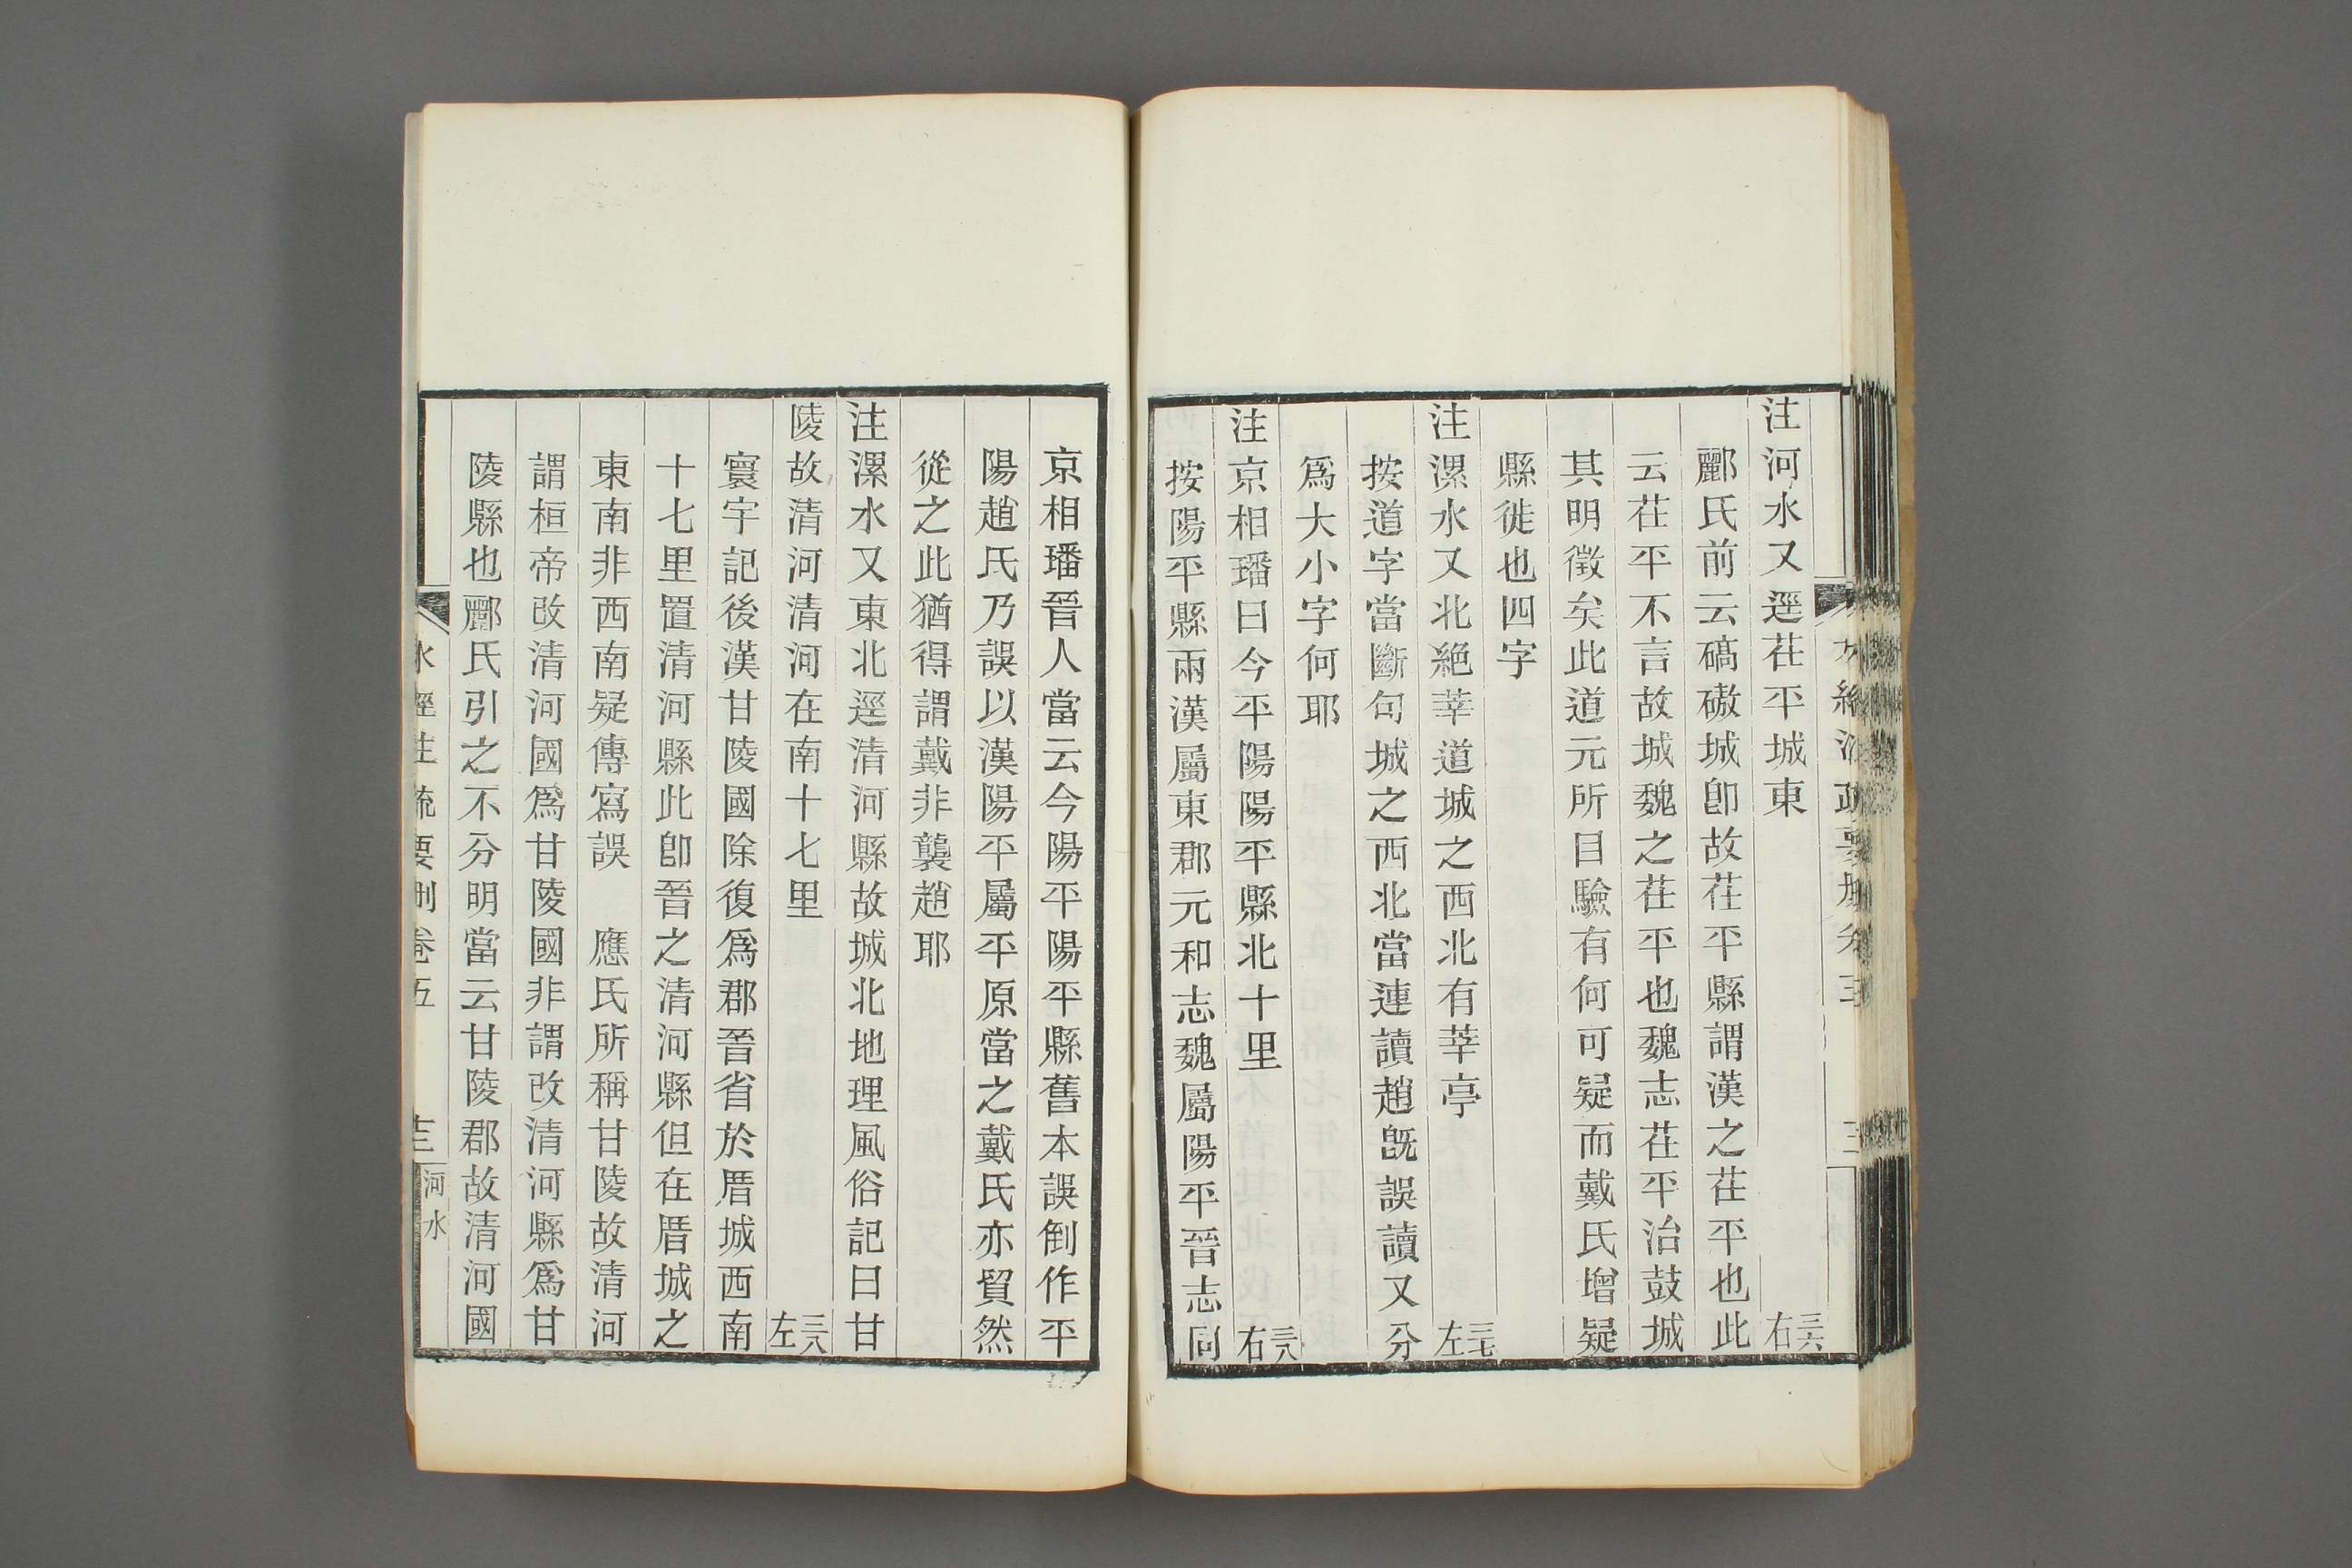 注河水又逕茌平城東 三六右
酈氏前云碻磝城卽故茌平縣謂漢之茌平也此
云茌平不言故城魏之茌平也魏志茌平治鼓城
其明徵矣此道元所目驗有何可疑而戴氏增疑
縣徙也四字
注漯水又北絕莘道城之西北有莘亭 三七左
按道字當斷句城之西北當連讀趙旣誤讀又分
爲大小字何耶
注京相璠曰今平陽陽平縣北十里 三八右
按陽平縣兩漢屬東郡元和志魏屬陽平晉志同
京相璠晉人當云今陽平陽平縣舊本誤倒作平
陽趙氏乃誤以漢陽平屬平原當之戴氏亦貿然
從之此猶得謂戴非襲趙耶
注漯水又東北逕清河縣故城北地理風俗記曰甘
陵故清河清河在南十七里 三八左
寰宇記後漢甘陵國除復爲郡晉省於厝城西南
十七里置清河縣此卽晉之清河縣但在厝城之
東南非西南疑傳寫誤　應氏所稱甘陵故清河
謂桓帝改清河國爲甘陵國非謂改清河縣爲甘
陵縣也酈氏引之不分明當云甘陵郡故清河國
水經注疏要刪卷五
河水